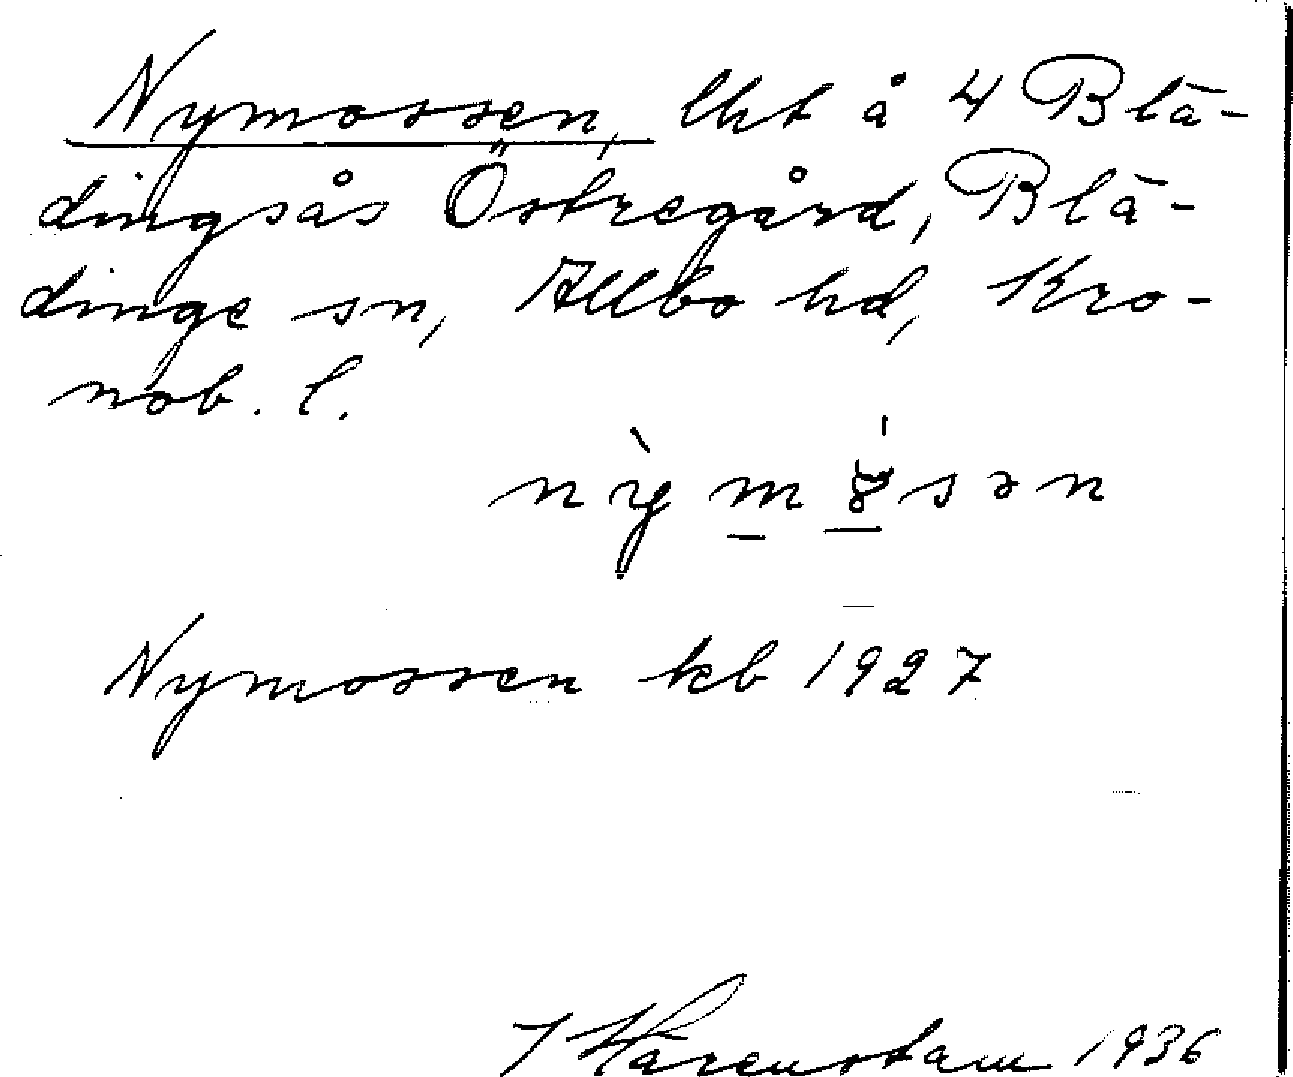 Nymossen, lht å 4 Blä-
dingsås Östregård, Blä-
dinge sn, Allbo hd, Kro-
nob. l.
Nymossen kb 1927
J Härenstam 1936